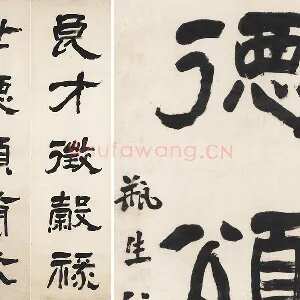 良才徵穀祿
德頌
德頌
瓶生
shufawang.CN